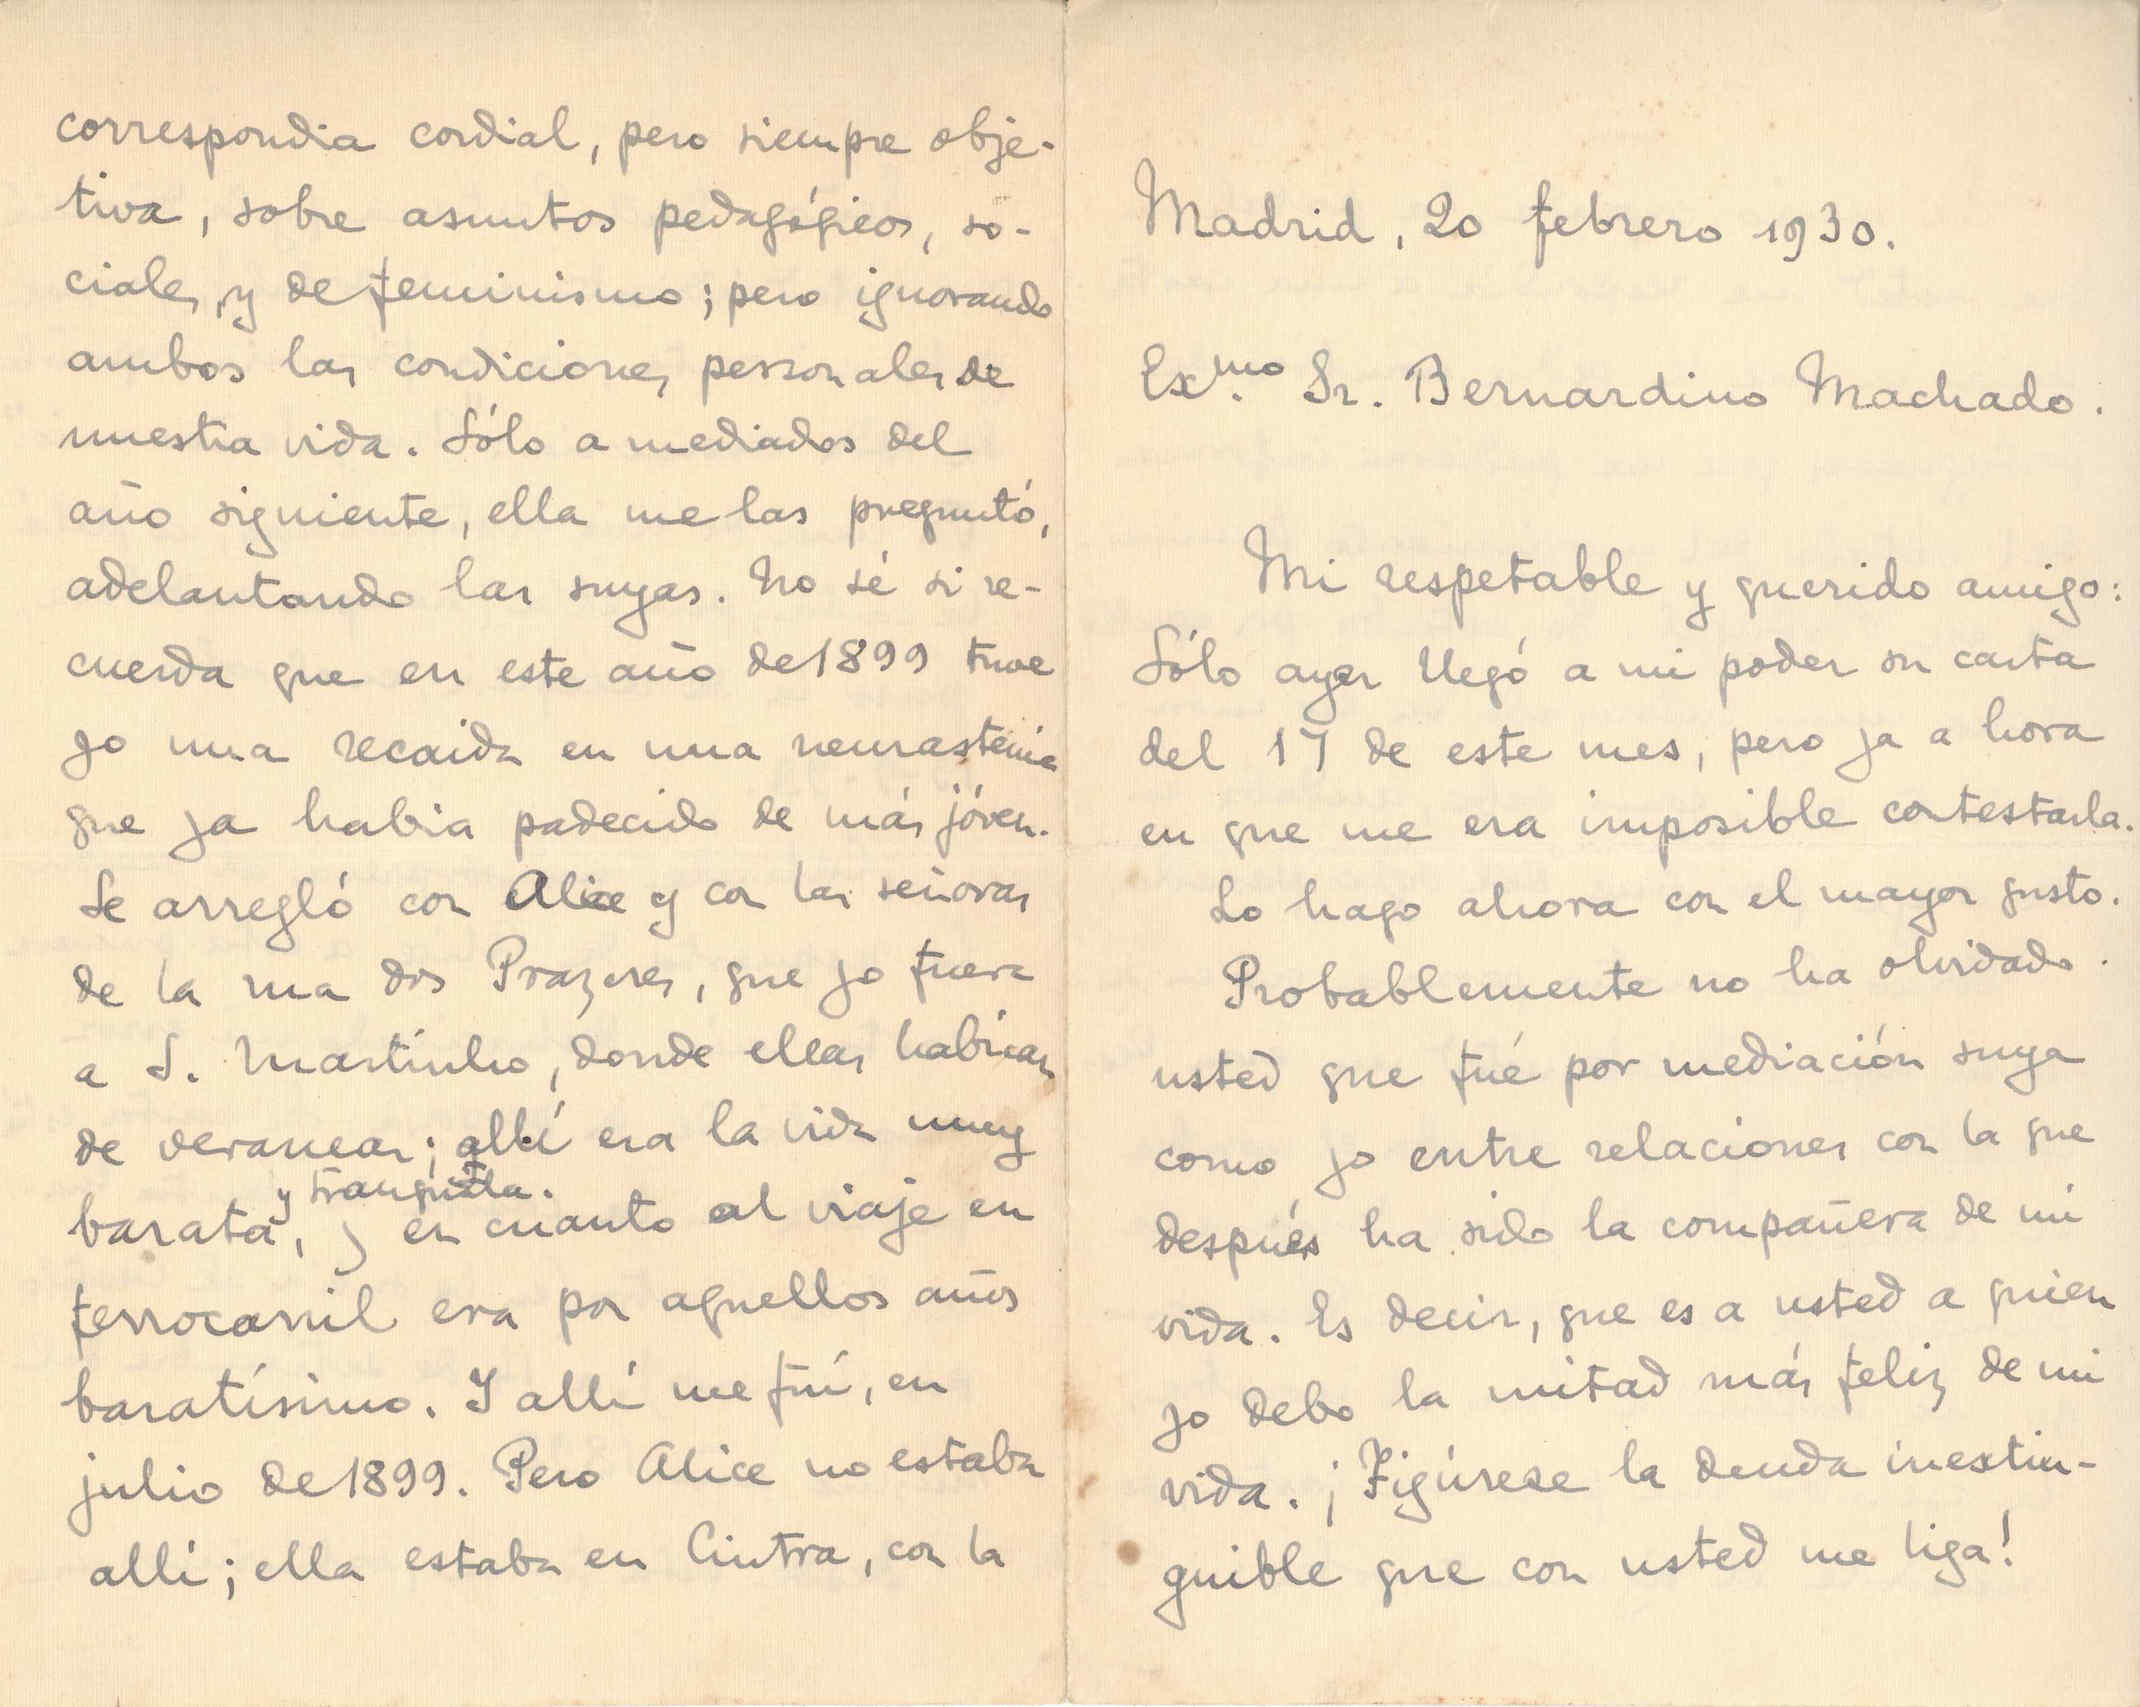 Madrid, 20 febrero 1930.
Exmo. Sr. Bernardino Machado.
Mi respetable y querido amigo:
Sólo ayer llegó a mi poder su carta
del 17 de este mes, pero ya a hora
en que me era imposible contestarla.
Lo hago ahora con el mayor gusto.
Probablemente no ha olvidado
usted que fué por mediación suya
como yo entre relaciones con la que
después ha sido la compañera de mi
vida. Es decir, que es a usted a quien
yo debo la mitad más feliz de mi
vida. ¡Figúrese la deuda inextin-
guible que con usted me liga!
correspondia cordial, pero siempre obje-
tiva, sobre asuntos pedagógicos, so-
ciales, y de feminismo; pero ignorando
ambos las condiciones personales de
nuestra vida. Sólo a mediados del
año siguiente, ella me las preguntó,
adelantando las suyas. No sé si re-
cuerda que en este año de 1899 tuve
yo una recaida en una neurastenia
que ya habia padecido de más jóven.
Se arregló con Alice y con las señoras
de la rua dos Prazeres, que yo fuera
a S. Martinho, donde ellas habían
de veranear; allí era la vida muy
barata, y tranquila. y en cuanto al viaje en
ferrocarril era por aquellos años
baratísimo. Y allí me fuí, en
julio de 1899. Pero Alice no estaba
allí; ella estaba en Cintra, con la